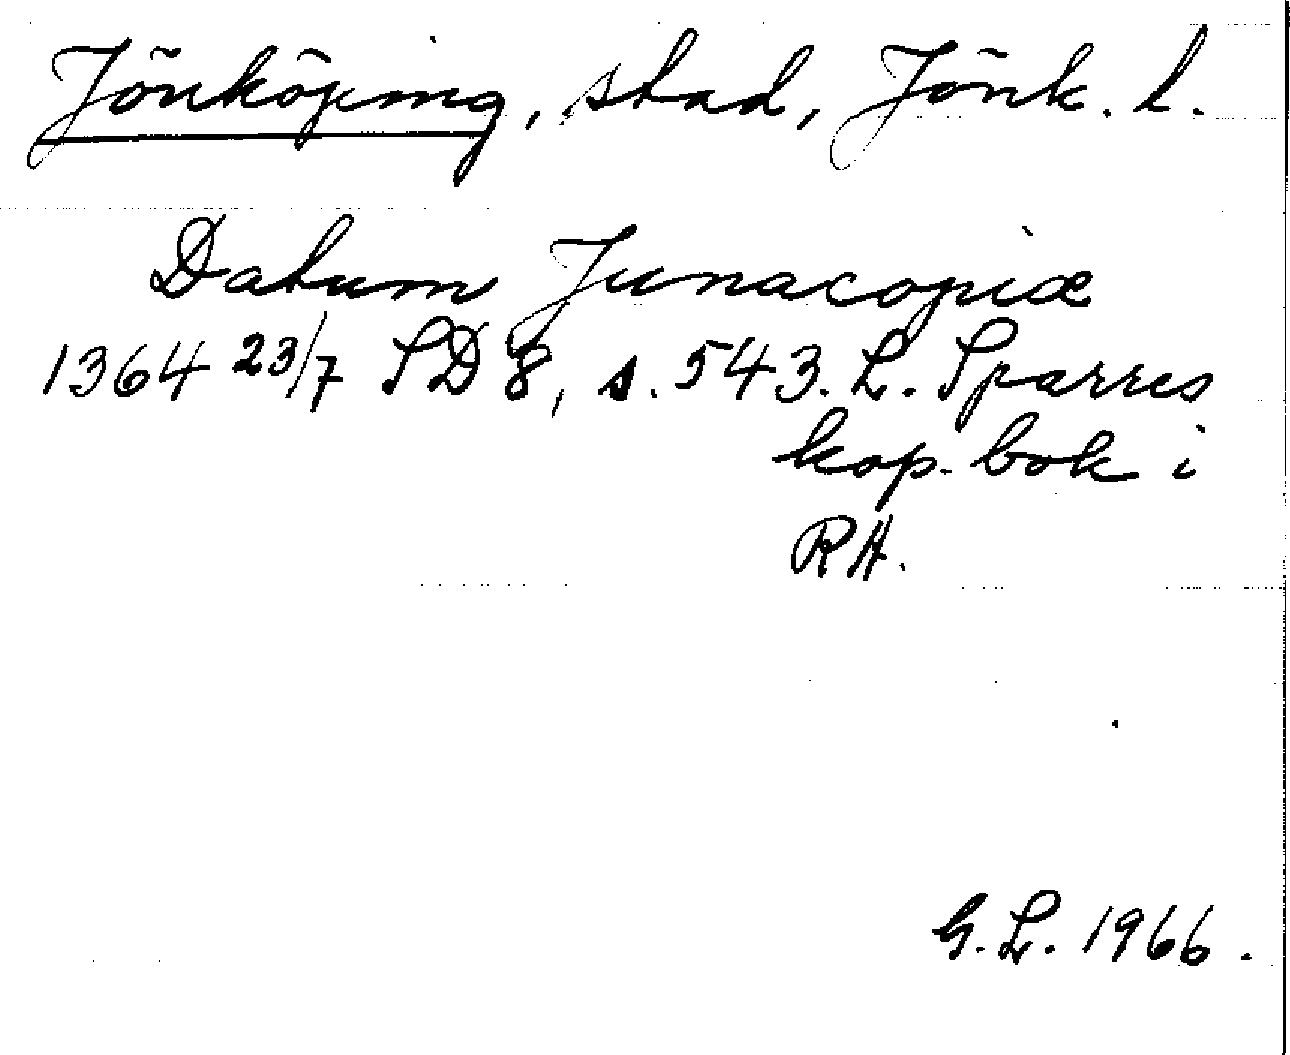 Jönköping, stad, Jönk. l.
Datum Junacopiæ
1364 23/7 SD 8, s. 543. L. Sparres
kop. bok i
RA.
G. L. 1966.